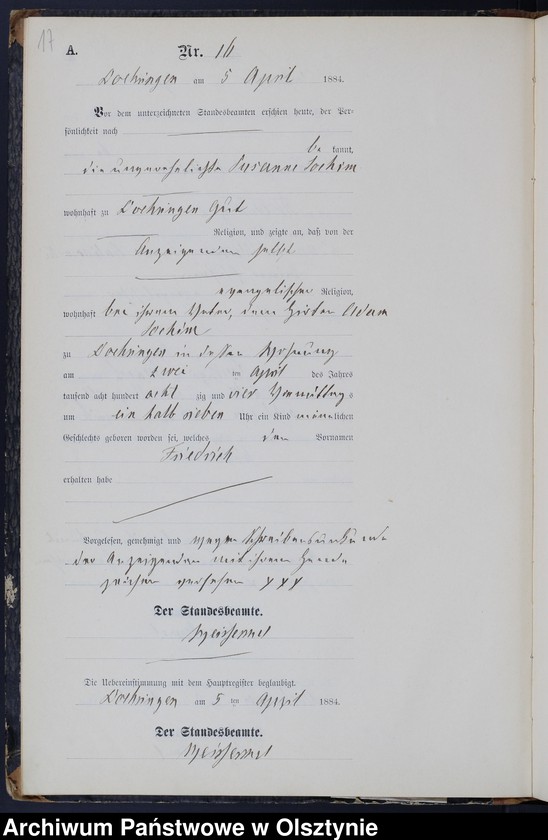 17
A.
Nr. 16
Doehringen am 5 April 1884.
Vor dem unterzeichneten Standesbeamten erschien heute, der Per-
sönlichkeit nach
be kannt,
die unverehelichte Susanne Jochim
wohnhaft zu Doehringen Gut
Religion, und zeigte an, daß von der
Anzeigenden selbst
evangelischer Religion,
wohnhaft bei ihrem Vater, dem Hirten Adam
Jochim
zu Doehringen in dessen Wohnung
am zwei ten April des Jahres
tausend acht hundert acht zig und vier Vormittags
um ein halb sieben Uhr ein Kind männlichen
Geschlechts geboren worden sei, welches den Vornamen
Friedrich
erhalten habe
Vorgelesen, genehmigt und wegen Schreibensunkunde
der Anzeigenden mit ihrem Hand-
zeichen versehen XXX
Der Standesbeamte.
Die Uebereinstimmung mit dem Hauptregister beglaubigt.
Doehringen am 5 ten April 1884.
Der Standesbeamte.
Archiwum Państwowe w Olsztynie